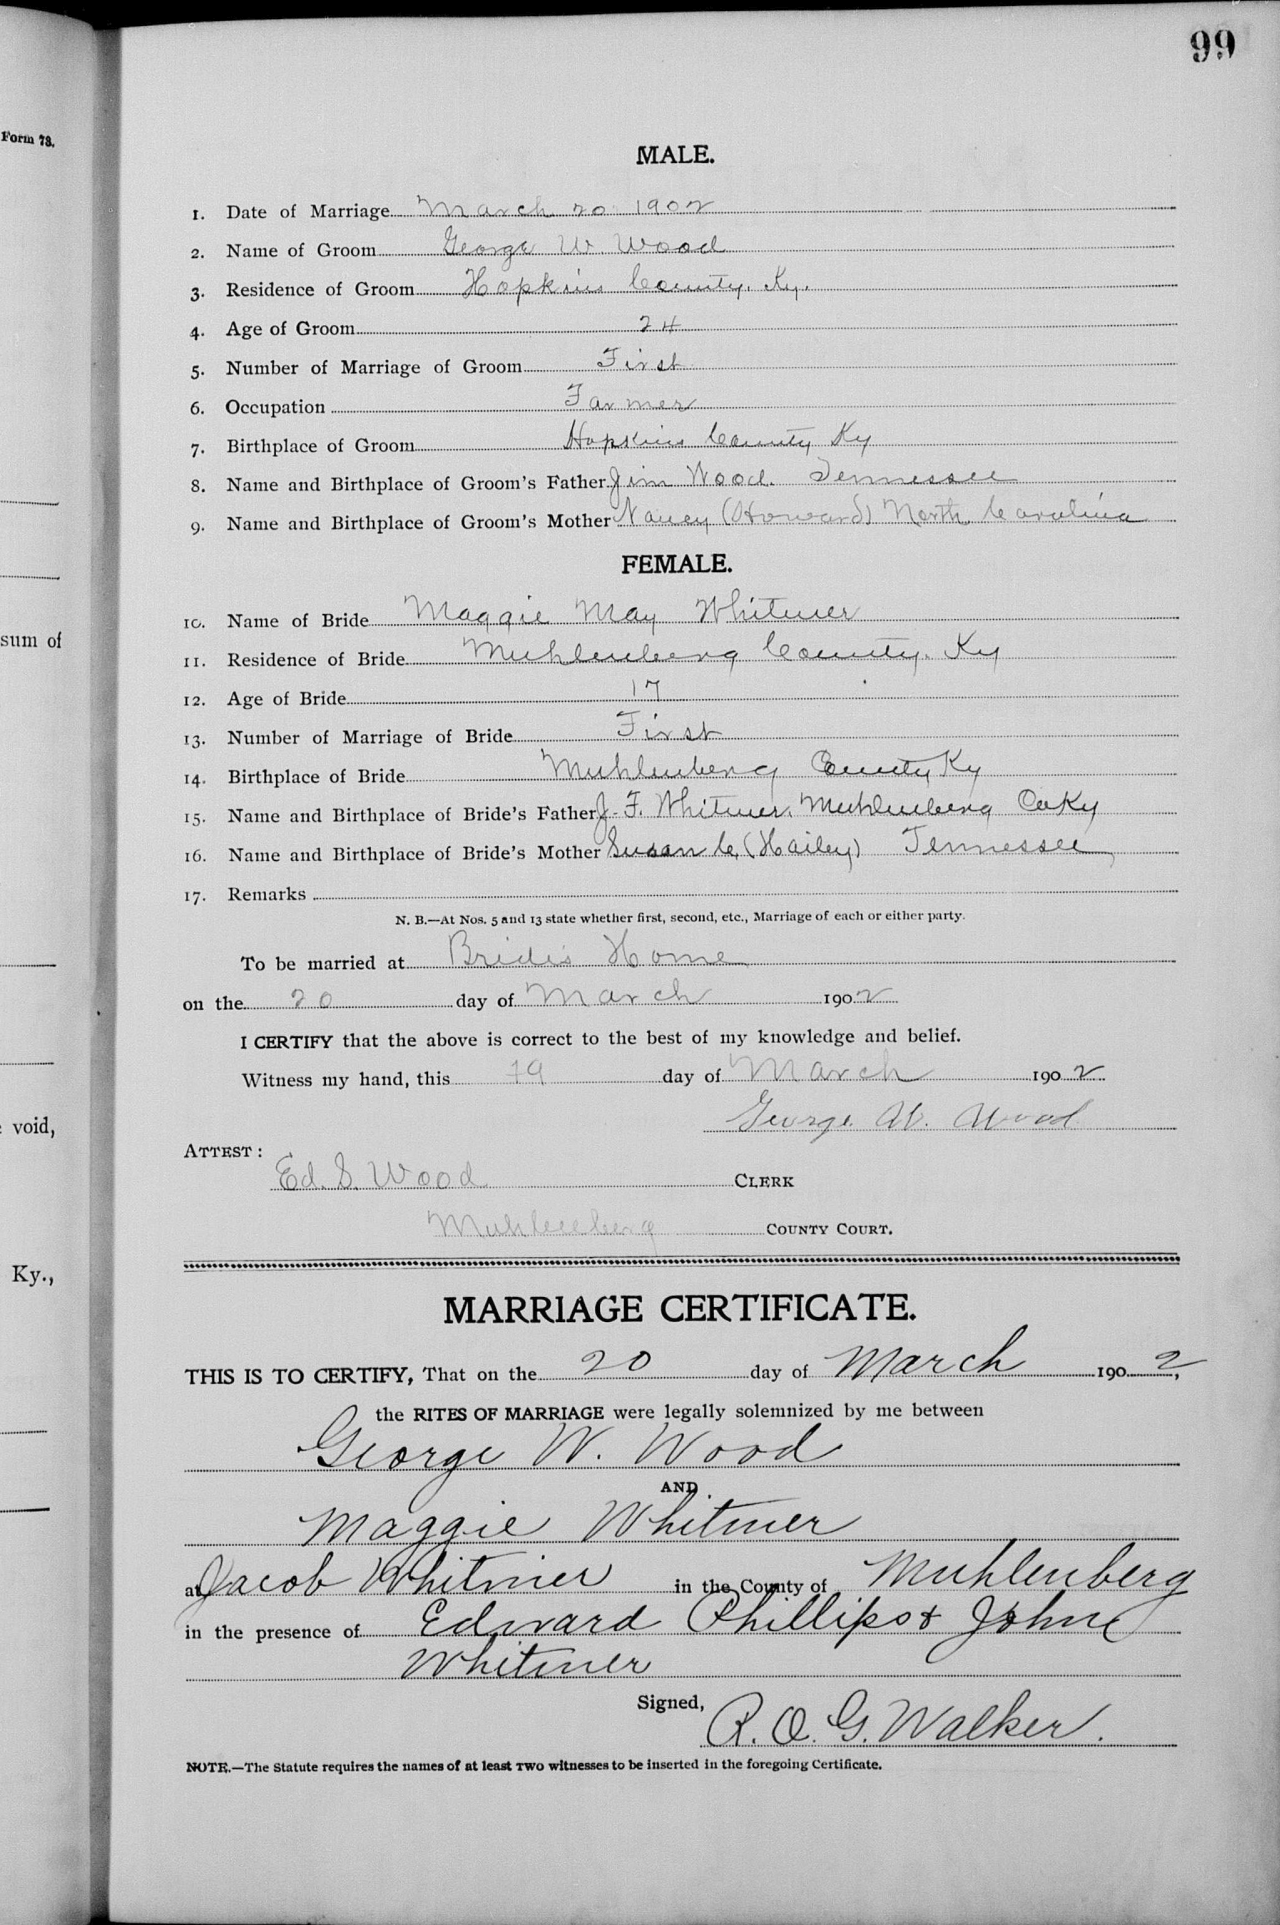 99
Form 73.
MALE.
1. Date of Marriage March 20 1902
2. Name of Groom George W. Wood
3. Residence of Groom Hopkins County. Ky.
4. Age of Groom 24
5. Number of Marriage of Groom First
6. Occupation Farmer
7. Birthplace of Groom Hopkins County Ky
8. Name and Birthplace of Groom's Father Jim Wood. Tennessee
9. Name and Birthplace of Groom's Mother Nancy (Howard) North Carolina
FEMALE.
10. Name of Bride Maggie May Whitmer
sum of
11. Residence of Bride Muhlenberg County. Ky
12. Age of Bride 17
13. Number of Marriage of Bride First
14. Birthplace of Bride Muhlenberg County Ky
15. Name and Birthplace of Bride's Father J. F. Whitmer. Muhlenberg Co Ky
16. Name and Birthplace of Bride's Mother Susan C. (Hailey) Tennessee
17. Remarks
N. B.—At Nos. 5 and 13 state whether first, second, etc., Marriage of each or either party.
To be married at Bride's Home
on the 20 day of March 1902
I CERTIFY that the above is correct to the best of my knowledge and belief.
Witness my hand, this 19 day of March 1902
George W. Wood
void,
ATTEST:
Ed. S. Wood CLERK
Muhlenberg COUNTY COURT.
Ky.,
MARRIAGE CERTIFICATE.
THIS IS TO CERTIFY, That on the 20 day of March 1902,
the RITES OF MARRIAGE were legally solemnized by me between
George W. Wood
AND
Maggie Whitmer
at Jacob Whitmer in the County of Muhlenberg
in the presence of Edward Phillips & John
Whitmer
Signed, R. O. G. Walker.
NOTE.—The Statute requires the names of at least TWO witnesses to be inserted in the foregoing Certificate.